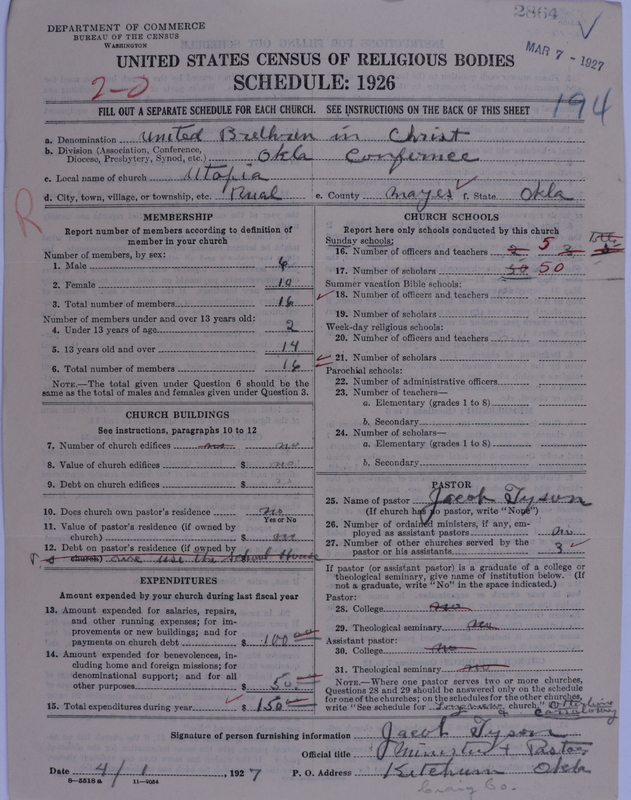 2864
DEPARTMENT OF COMMERCE
BUREAU OF THE CENSUS
WASHINGTON
MAR 7 - 1927
UNITED STATES CENSUS OF RELIGIOUS BODIES
SCHEDULE: 1926
2-0
194
FILL OUT A SEPARATE SCHEDULE FOR EACH CHURCH. SEE INSTRUCTIONS ON THE BACK OF THIS SHEET
a. Denomination United Brethren in Christ
b. Division (Association, Conference, Diocese, Presbytery, Synod, etc.) Okla Conference
c. Local name of church Utopia
d. City, town, village, or township, etc. Rural e. County Mayes f. State Okla
R
MEMBERSHIP
Report number of members according to definition of
member in your church
Number of members, by sex:
1. Male 6
2. Female 10
3. Total number of members 16
Number of members under and over 13 years old:
4. Under 13 years of age 2
5. 13 years old and over 14
6. Total number of members 16
NOTE.—The total given under Question 6 should be the
same as the total of males and females given under Question 3.
CHURCH BUILDINGS
See instructions, paragraphs 10 to 12
7. Number of church edifices no
8. Value of church edifices $ no
9. Debt on church edifices $
10. Does church own pastor's residence no
Yes or No
11. Value of pastor's residence (if owned by
church) $ no
12. Debt on pastor's residence (if owned by
church) we use the School House
EXPENDITURES
Amount expended by your church during last fiscal year
13. Amount expended for salaries, repairs,
and other running expenses; for im-
provements or new buildings; and for
payments on church debt $ 100
14. Amount expended for benevolences, in-
cluding home and foreign missions; for
denominational support; and for all
other purposes $ 50
15. Total expenditures during year $ 150
CHURCH SCHOOLS
Report here only schools conducted by this church
Sunday schools:
16. Number of officers and teachers 2 5 3
17. Number of scholars 50 50
Summer vacation Bible schools:
18. Number of officers and teachers
19. Number of scholars
Week-day religious schools:
20. Number of officers and teachers
21. Number of scholars
Parochial schools:
22. Number of administrative officers
23. Number of teachers—
a. Elementary (grades 1 to 8)
b. Secondary
24. Number of scholars—
a. Elementary (grades 1 to 8)
b. Secondary
PASTOR
25. Name of pastor Jacob Tyson
(If church has no pastor, write "None")
26. Number of ordained ministers, if any, em-
ployed as assistant pastors no
27. Number of other churches served by the
pastor or his assistants 3
If pastor (or assistant pastor) is a graduate of a college or
theological seminary, give name of institution below. (If
not a graduate, write "No" in the space indicated.)
Pastor:
28. College no
29. Theological seminary no
Assistant pastor:
30. College no
31. Theological seminary no
NOTE.—Where one pastor serves two or more churches,
Questions 28 and 29 should be answered only on the schedule
for one of the churches; on the schedules for the other churches,
write "See schedule for church."
Signature of person furnishing information Jacob Tyson
Official title Minister + Pastor
Date 4/1 1927 P. O. Address Ketchum Okla
8-5518 a 11-9054
Craig Co.